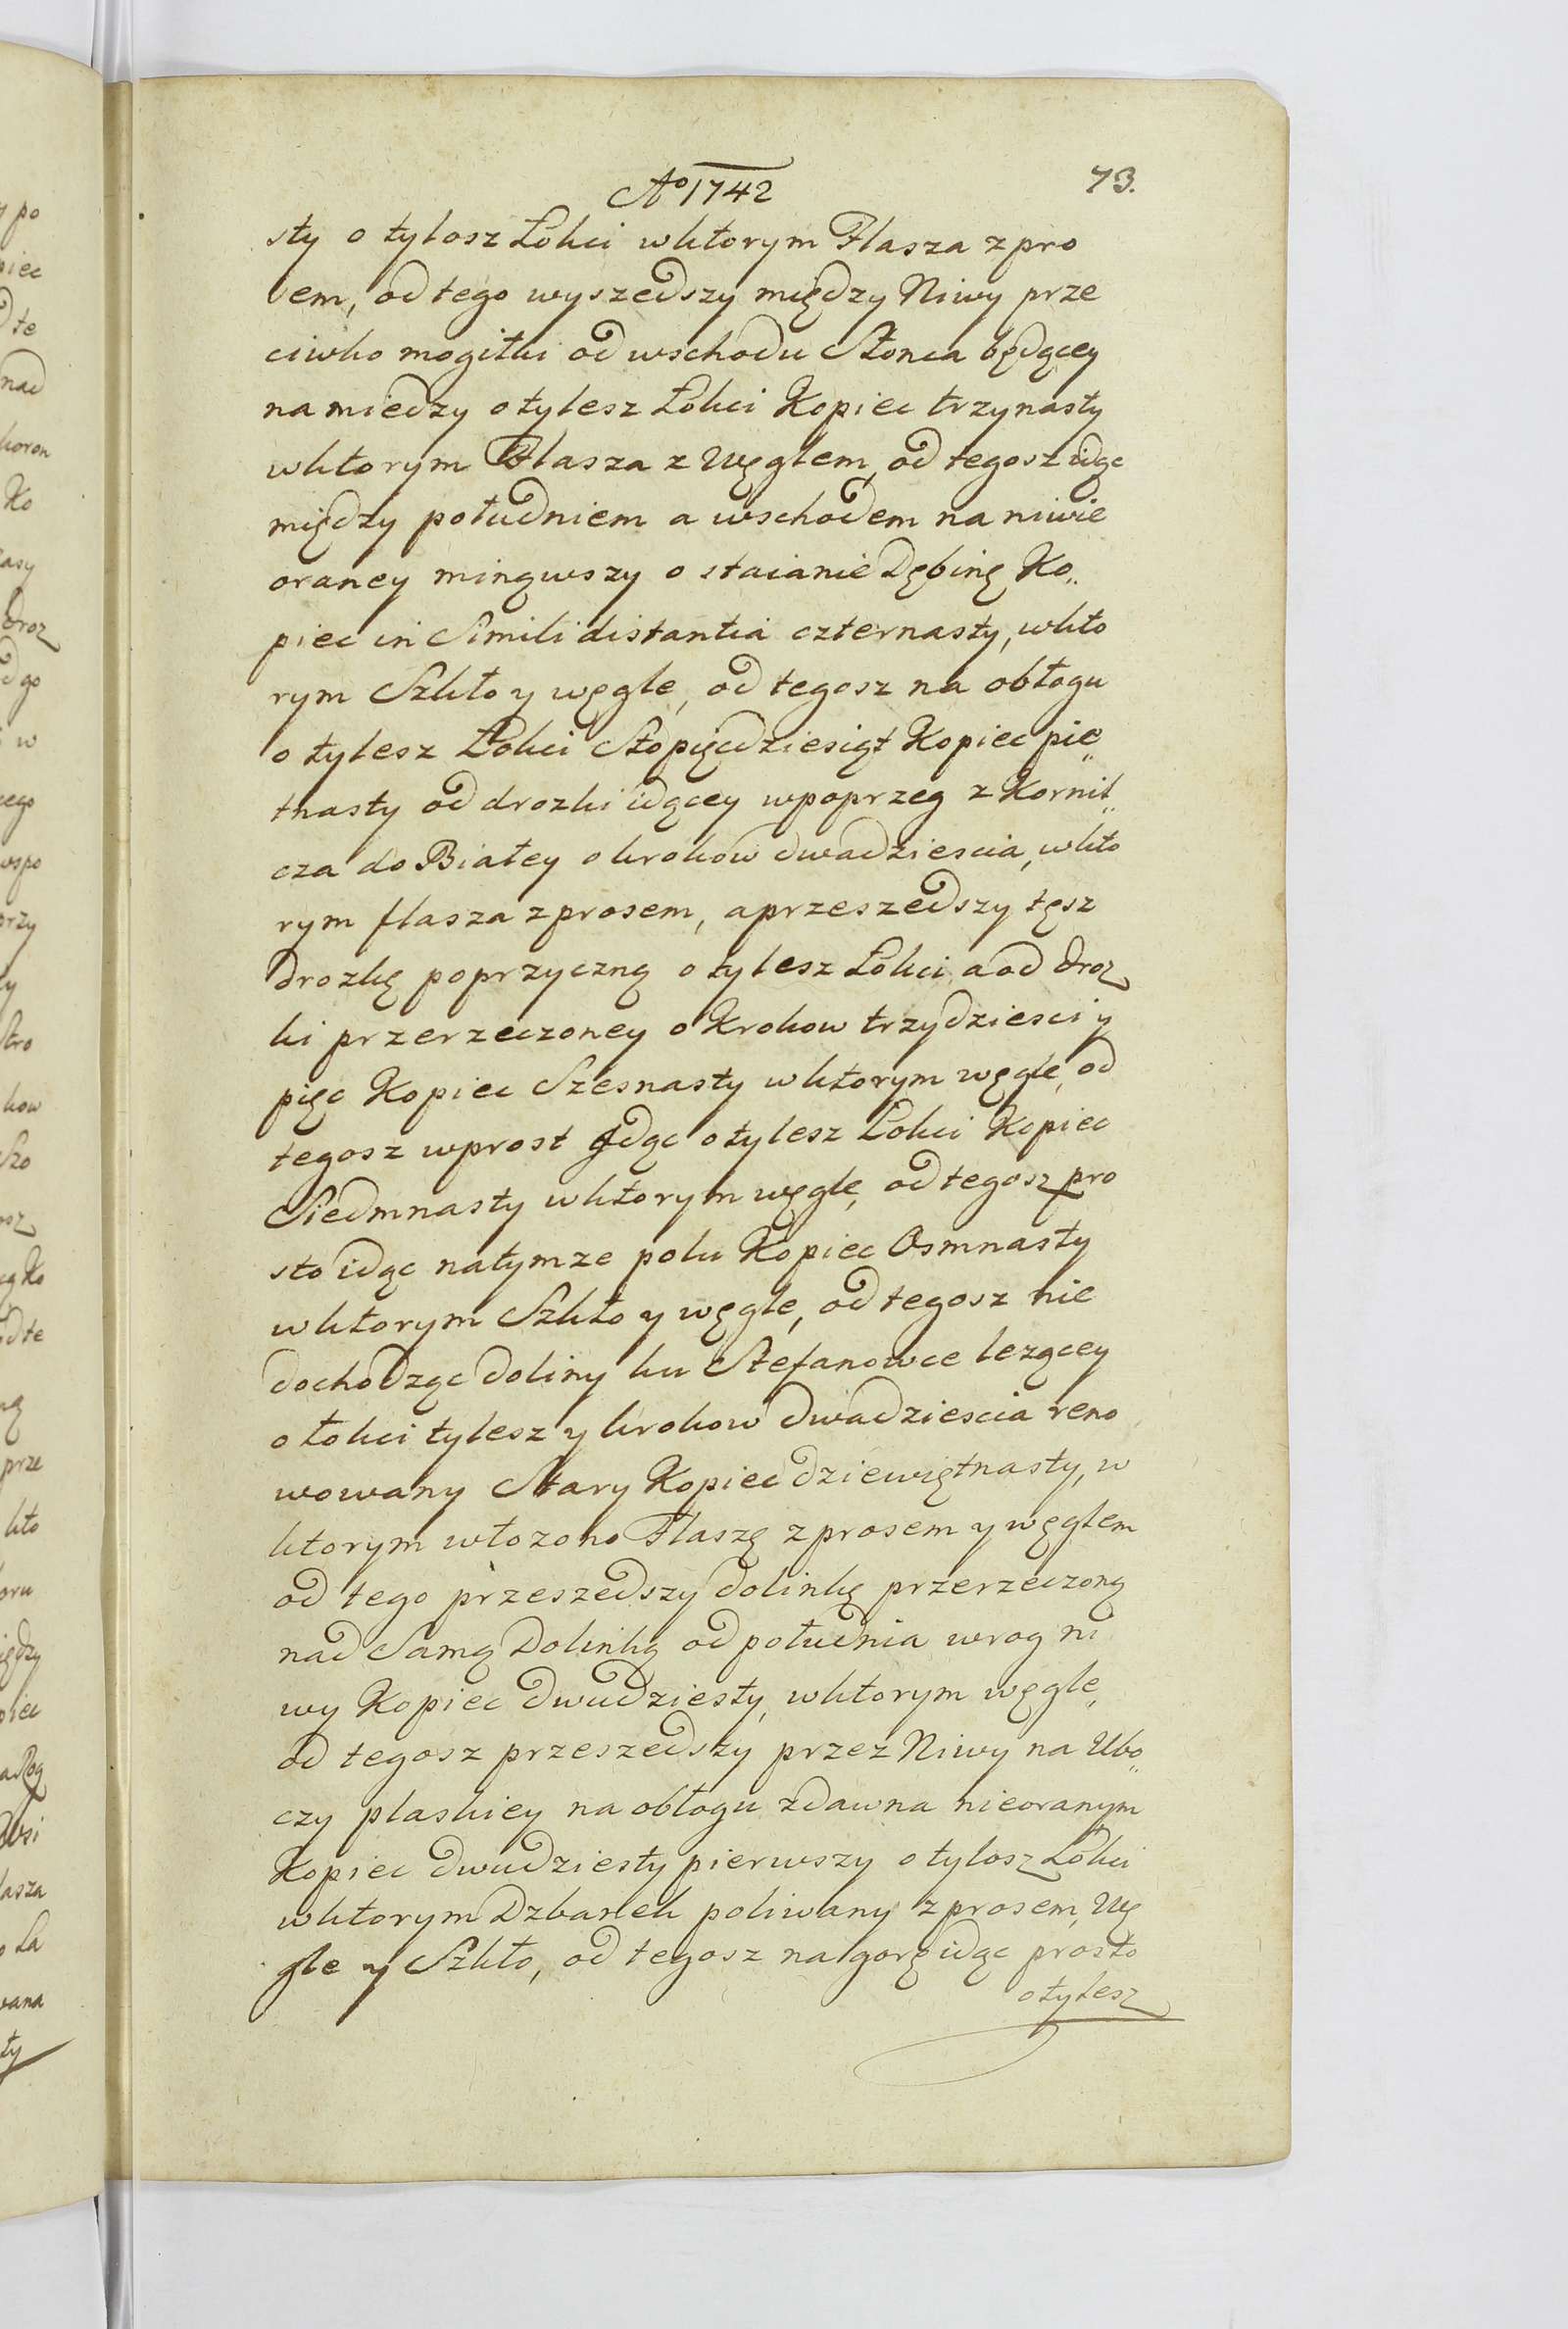 Aº 1742
73.
sty o tylosz Łokci wktorym Flasza z pro
sem, od tego wyszedszy między Niwy prze
ciwko mogiłki od wschodu Słonca będącey
na miedzy o tylesz Łokci Kopiec trzynasty
wktorym Flasza z Węglem, od tegosz idąc
między południem a wschodem na niwie
oraney minąwszy o staianie Dębinę Ko„
piec in Simili distantia czternasty, wkto
rym Szkło y węgle, od tegosz na obłogu
o tylesz Łokci Stopięcdziesiąt Kopiec pię„
tnasty od drozki idącey wpoprzeg z Kornił„
cza do Białey o krokow dwadziescia, wkto
rym flasza z prosem, a przeszedszy tęsz
drozkę poprzyczną o tylesz Łokci a od droz
ki przerzeczoney o Krokow trzydziesci y
pięc Kopiec Szesnasty wktorym węgle, od
tegosz wprost Jdąc o tylesz Łokci Kopiec
Siedmnasty wktorym węgle, od tegosz pro
sto idąc natymze polu Kopiec Osmnasty
wktorym Szkło y węgle, od tegosz nie
dochodząc doliny ku Stefanowce lezącey
o łokci tylesz y krokow dwadziescia reno
wowany Stary Kopiec dziewiętnasty, w
ktorym włozono Flaszę z prosem y węglem
od tego przeszedszy dolinkę przerzeczoną
nad Samą Dolinką od południa wrog ni
wy Kopiec dwudziesty, wktorym węgle,
od tegosz przeszedszy przez Niwy na Ubo„
czy plaskiey na obłogu zdawna nieoranym
Kopiec dwudziesty pierwszy o tylosz Łokci
wktorym Dzbanek poliwany z prosem, Wę
gle y Szkło, od tegosz na gorę idąc prosto
o tylesz